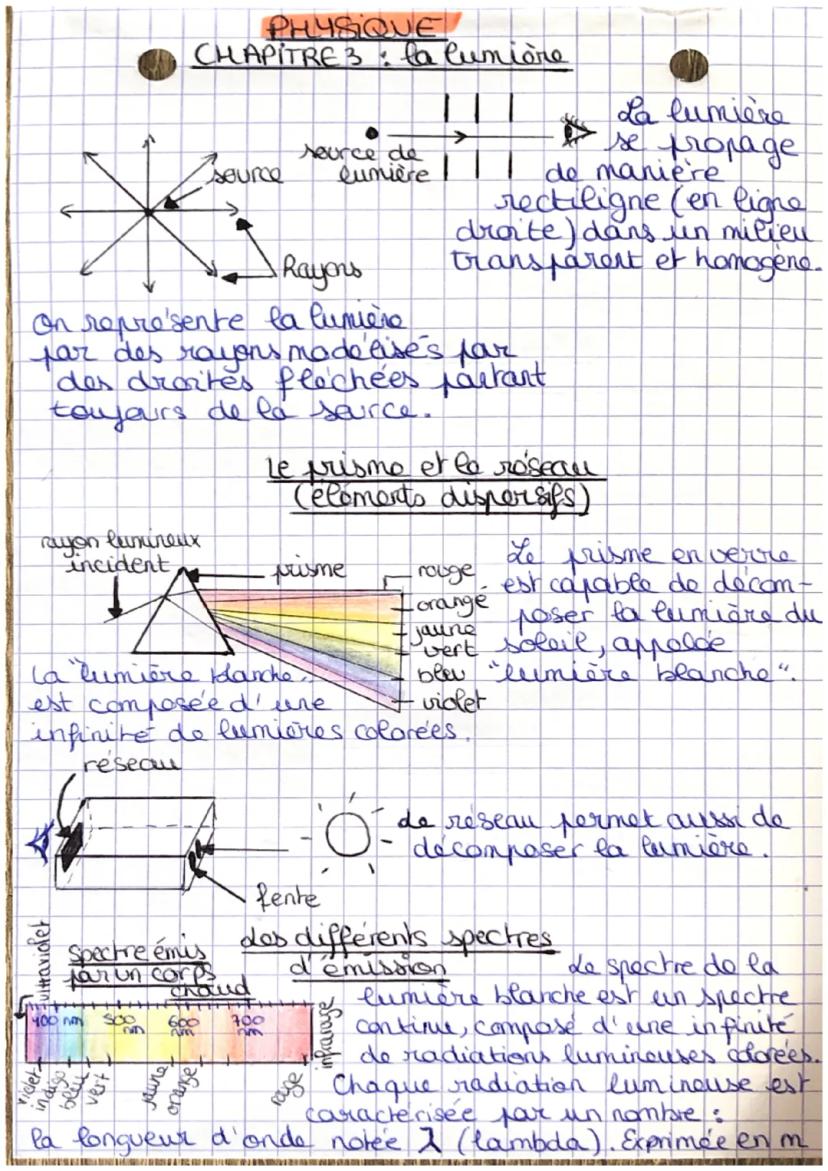 PHYSIQUE
CHAPITRE 3 : la lumière
source
Rayons
source de
lumière
La lumière
se propage
de manière
rectiligne (en ligne
droite) dans un milieu
transparent et homogène.
On représente la lumière
par des rayons modélisés par
des droites fléchées partant
toujours de la source.
Le prisme et le réseau
(éléments dispersifs)
rayon lumineux
incident
prisme
rouge
orangé
jaune
vert
bleu
violet
Le prisme en verre
est capable de décom-
poser la lumière du
soleil, appelée
"lumière blanche".
La "lumière blanche"
est composée d'une
infinité de lumières colorées.
réseau
fente
Le réseau permet aussi de
décomposer la lumière.
Les différents spectres
d'émission
Spectre émis
par un corps
chaud
ultraviolet
400 nm
500 nm
600 nm
700 nm
infrarouge
violet
indigo
bleu
vert
jaune
orange
rouge
Le spectre de la
lumière blanche est un spectre
continu, composé d'une infinité
de radiations lumineuses colorées.
Chaque radiation lumineuse est
caractérisée par un nombre :
la longueur d'onde notée λ (lambda). Exprimée en m